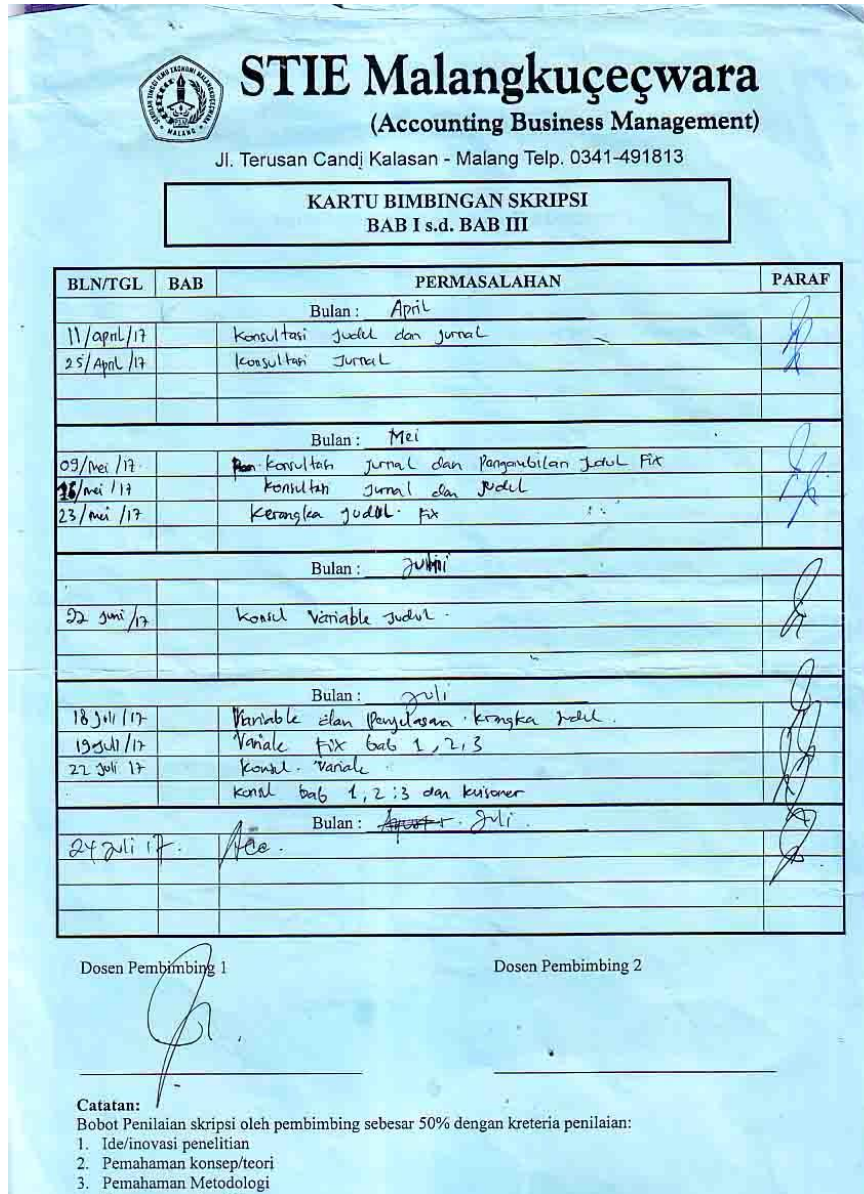 STIE Malangkuçeçwara
(Accounting Business Management)
SEKOLAH TINGGI ILMU EKONOMI MALANGKUCECWARA
MALANG
Jl. Terusan Candi Kalasan - Malang Telp. 0341-491813
KARTU BIMBINGAN SKRIPSI
BAB I s.d. BAB III
BLN/TGL BAB PERMASALAHAN PARAF
Bulan : April
11/april/17 Konsultasi Judul dan jurnal
25/April/17 Konsultasi Jurnal
Bulan : Mei
09/Mei/17 Konsultasi jurnal dan Pengambilan Judul Fix
16/mei/17 Konsultasi Jurnal dan Judul
23/mei/17 Kerangka Judul Fix
Bulan : Juni
22 Juni/17 Konsul Variable Judul
Bulan : Juli
18 Juli/17 Variable dan Penjelasan krangka judul
19 Juli/17 Variale Fix bab 1, 2, 3
22 Juli 17 Konsul Variale
Konsul bab 1, 2 : 3 dan kuisoner
Bulan : Juli
24 Juli 17. Acc.
Dosen Pembimbing 1 Dosen Pembimbing 2
Catatan:
Bobot Penilaian skripsi oleh pembimbing sebesar 50% dengan kreteria penilaian:
1. Ide/inovasi penelitian
2. Pemahaman konsep/teori
3. Pemahaman Metodologi